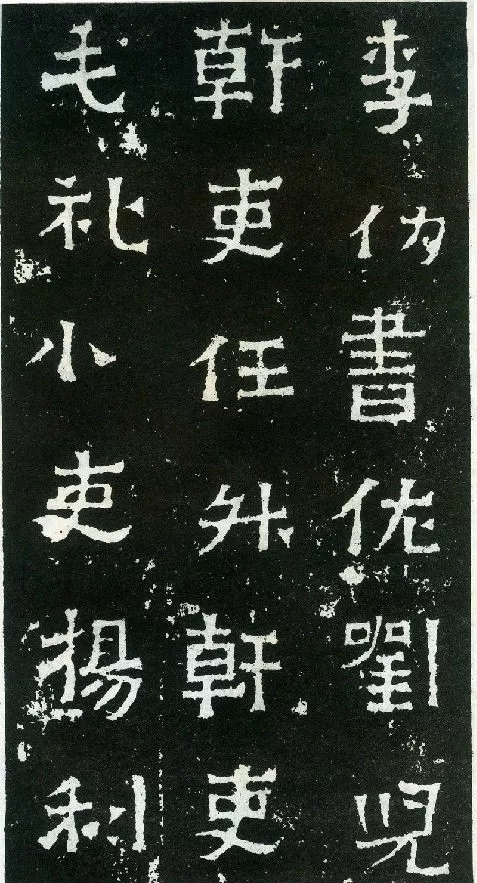 李仂書佐劉兒
幹吏任升幹吏
毛礼小吏揚利